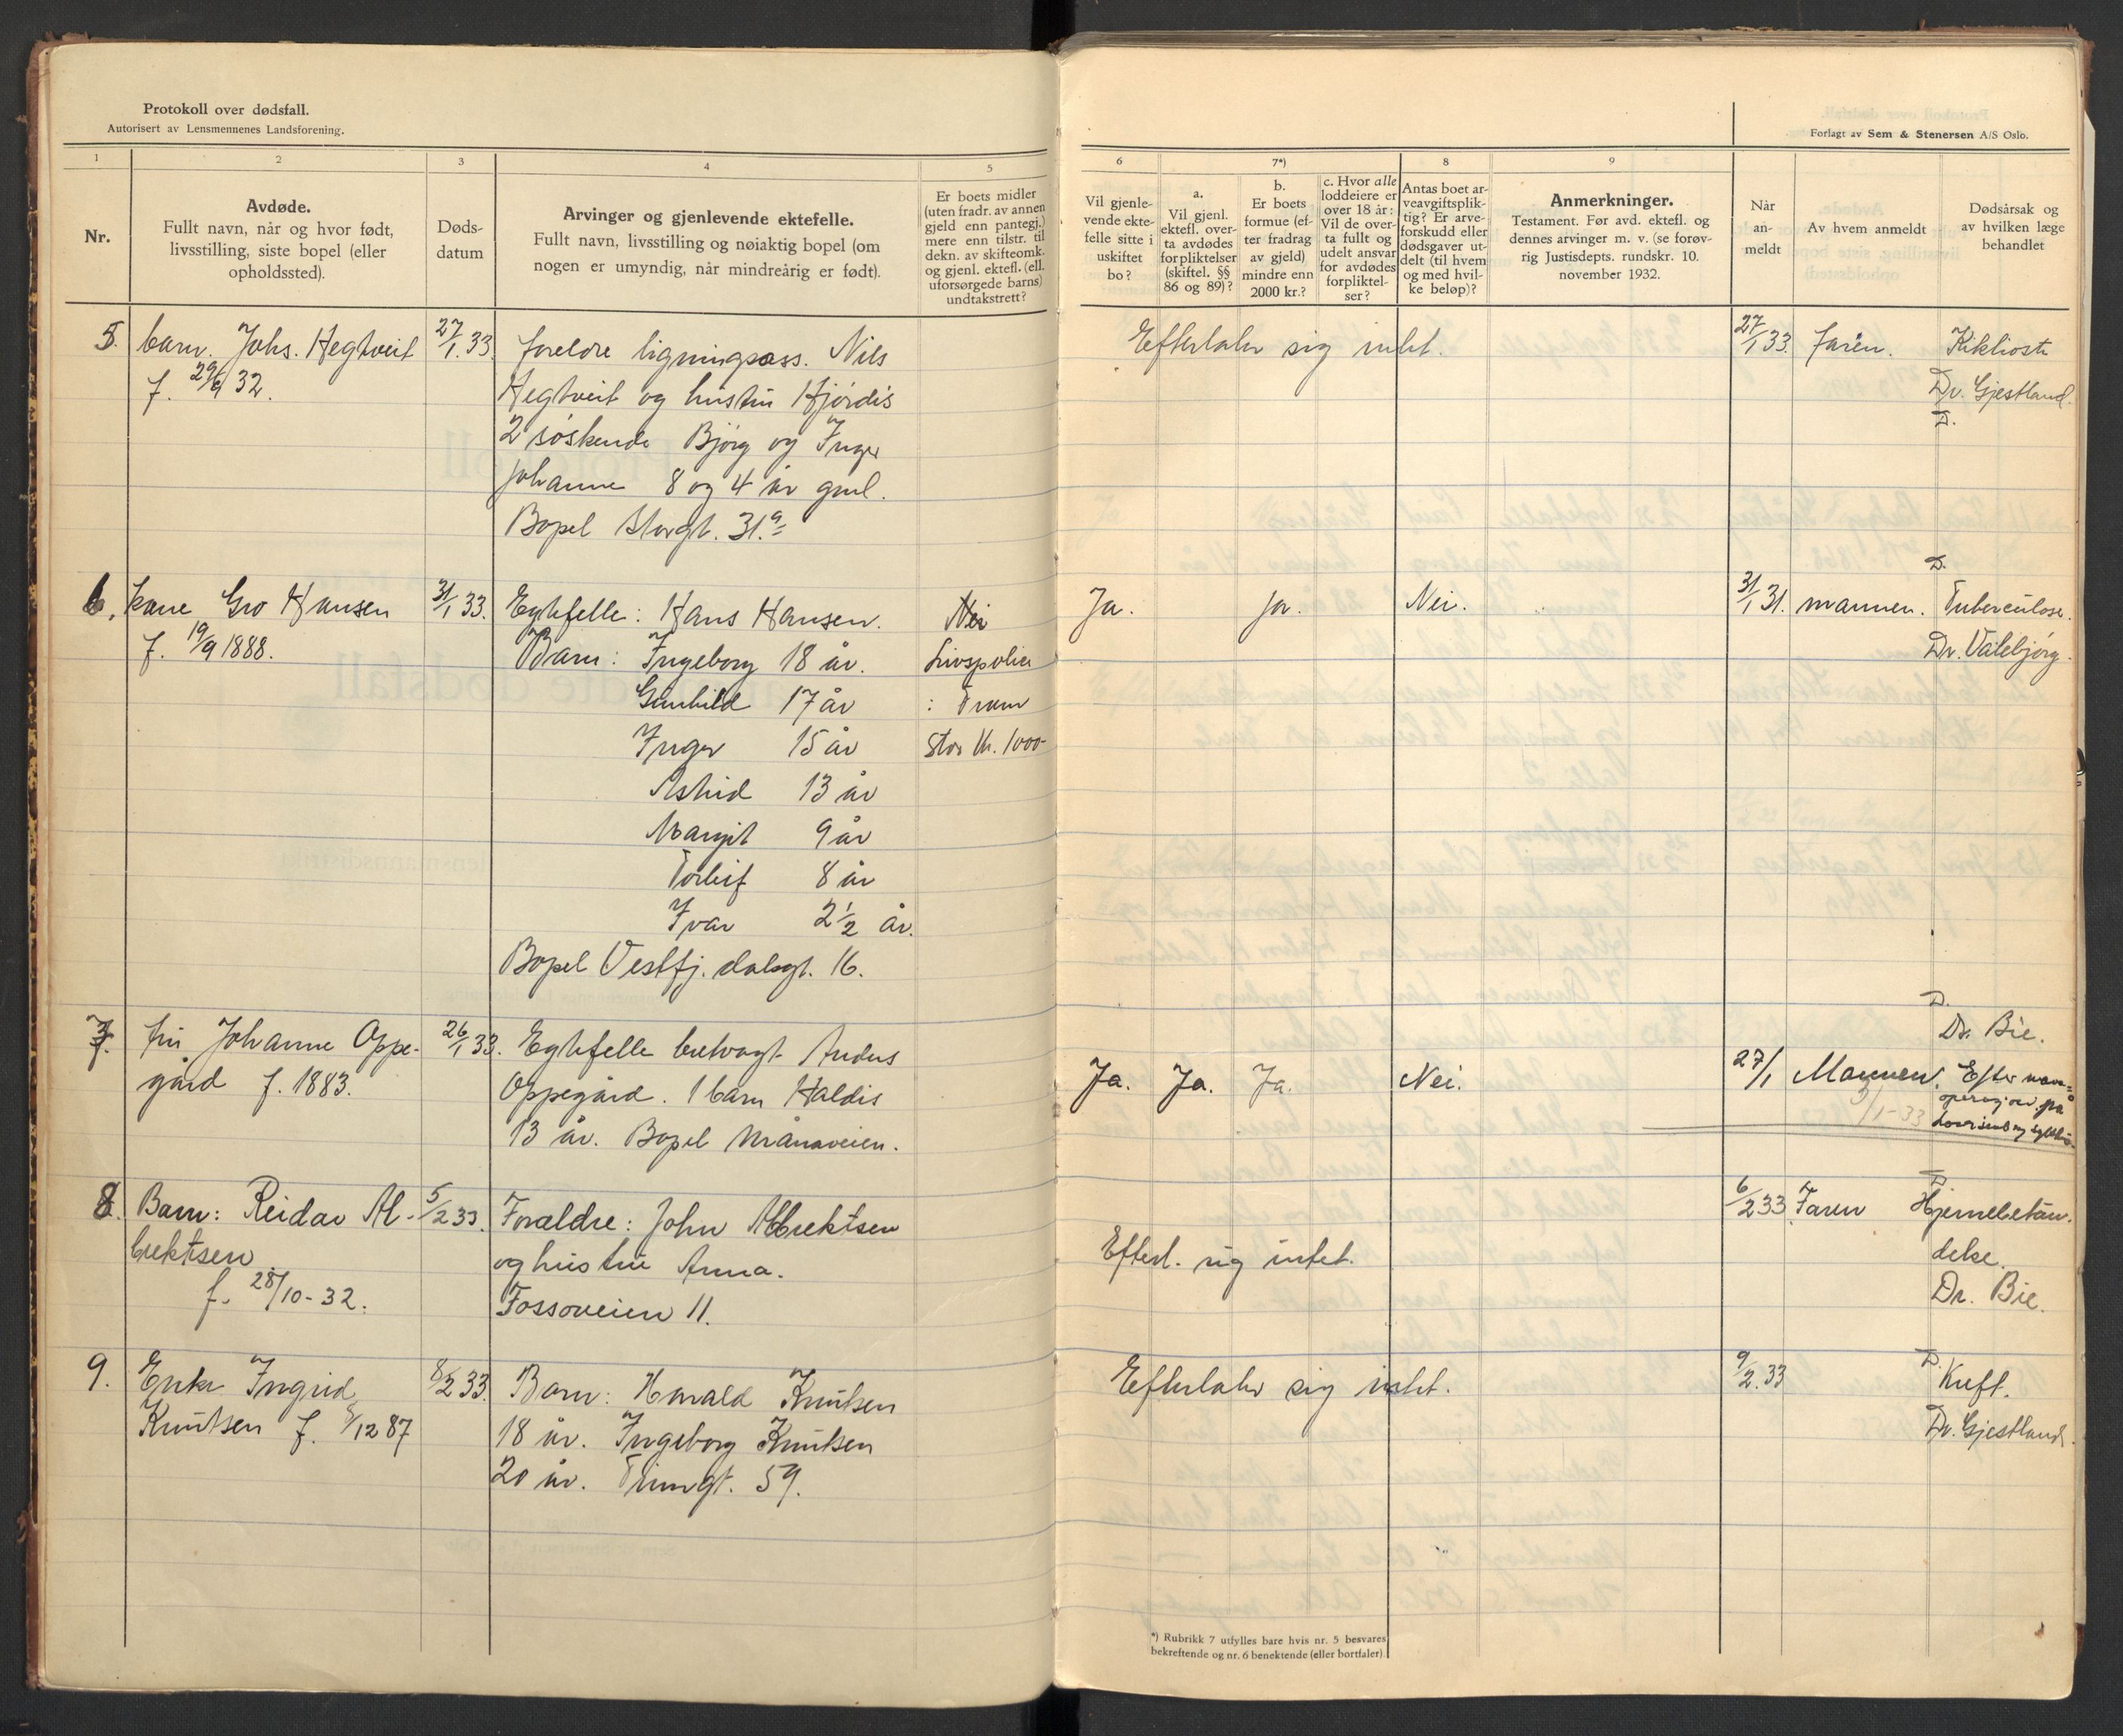 Protokoll over dødsfall.
Autorisert av Lensmennenes Landsforening.
1
2
3
4
5
Nr.
Avdøde.
Fullt navn, når og hvor født,
livsstilling, siste bopel (eller
opholdssted).
Døds-
datum
Arvinger og gjenlevende ektefelle.
Fullt navn, livsstilling og nøiaktig bopel (om
nogen er umyndig, når mindreårig er født).
Er boets midler
(uten fradr. av annen
gjeld enn pantegj.)
mere enn tilstr. til
dekn. av skifteomk.
og gjenl. ektef. (ell.
uforsørgede barns)
undtakstrett?
5. barn. Johs. Hegtveit 27/1. 33. foreldre ligningsass. Nils
f. 29/6 32. Hegtveit og hustru Hjørdis
2 søskende Bjørg og Inger
Johanne 8 og 4 år gml.
Bopel Storgt. 31.a
6. kone Gro Hansen 31/1 33. Egtefelle: Hans Hansen. Nei
f. 19/9 1888. Barn: Ingeborg 18 år. Livspolice
Gunhild 17 år : Fram
Inger 15 år stor kr. 1000-
Astrid 13 år
Margit 9 år
Torleif 8 år
Ivar 2 1/2 år.
Bopel Vestfj. dalsgt. 16.
7. fru Johanne Oppe- 26/1 33. Egtefelle Andus
gård f. 1883. Oppegård. 1 barn Haldis
13 år. Bopel Månaveien.
8. Barn: Reidar Al- 5/2 33. Forældre: John Albrektsen
brektsen og hustru Anna.
f. 28/10-32. Fossoveien 11.
9. Enke Ingrid 8/2 33. Barn: Harald Knutsen
Knutsen f. 8/12 87 18 år. Ingeborg Knutsen
20 år. Trimgt. 59.
Forlagt av Sem & Stenersen A/S Oslo.
6
7*)
8
9
Vil gjenle-
vende ekte-
felle sitte i
uskiftet
bo?
a.
Vil gjenl.
ektefl. over-
ta avdødes
forpliktelser
(skiftel. §§
86 og 89)?
b.
Er boets
formue (ef-
ter fradrag
av gjeld)
mindre enn
2000 kr.?
c. Hvor alle
loddeiere er
over 18 år:
Vil de over-
ta fullt og
udelt ansvar
for avdødes
forpliktel-
ser?
Antas boet ar-
veavgiftsplik-
tig? Er arve-
forskudd eller
dødsgaver ut-
delt (til hvem
og med hvil-
ke beløp)?
Anmerkninger.
Testament. Før avd. ektefl. og
dennes arvinger m. v. (se forøv-
rig Justisdepts. rundskr. 10.
november 1932.
Når
an-
meldt
Av hvem anmeldt
Dødsårsak og
av hvilken læge
behandlet
Efterlater sig intet. 27/1 33. faren. Kikhoste
Dr. Gjestland.
D.
D.
Ja. ja. Nei. 31/1 31. mannen. Tuberculose.
Dr. Valebjørg.
D.
Dr. Bie.
Ja. Ja. Ja. Nei. 27/1 Mannen. Efter
på
D.
6/2 33 Faren Hjernebetæn-
Efterl. sig intet. delse.
Dr. Bie.
D.
Efterlater sig intet. 9/2. 33 Kreft.
Dr. Gjestland.
*) Rubrikk 7 utfylles bare hvis nr. 5 besvares
bekreftende og nr. 6 benektende (eller bortfaler)